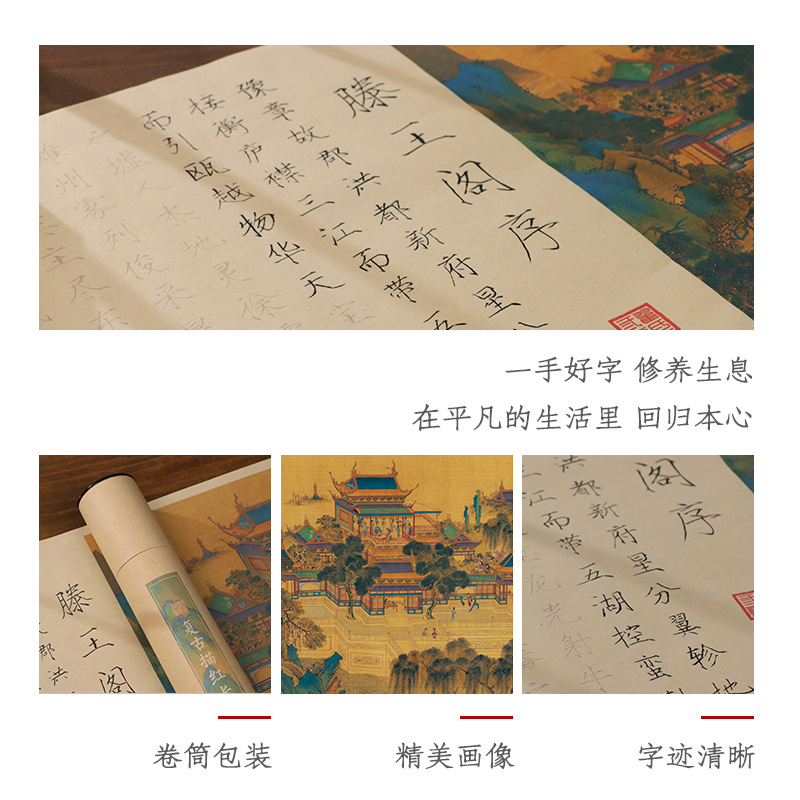 滕王阁序
豫章故郡洪都新府星
接衡庐襟三江而带五
而引瓯越物华天宝
墟人杰地灵徐
州雾列俊采星
主尽东
一手好字 修养生息
在平凡的生活里 回归本心
滕王阁
郡洪
复古描红
阁序
洪都新府星分翼轸地
江而带五湖控蛮
龙光射牛
卷筒包装
精美画像
字迹清晰